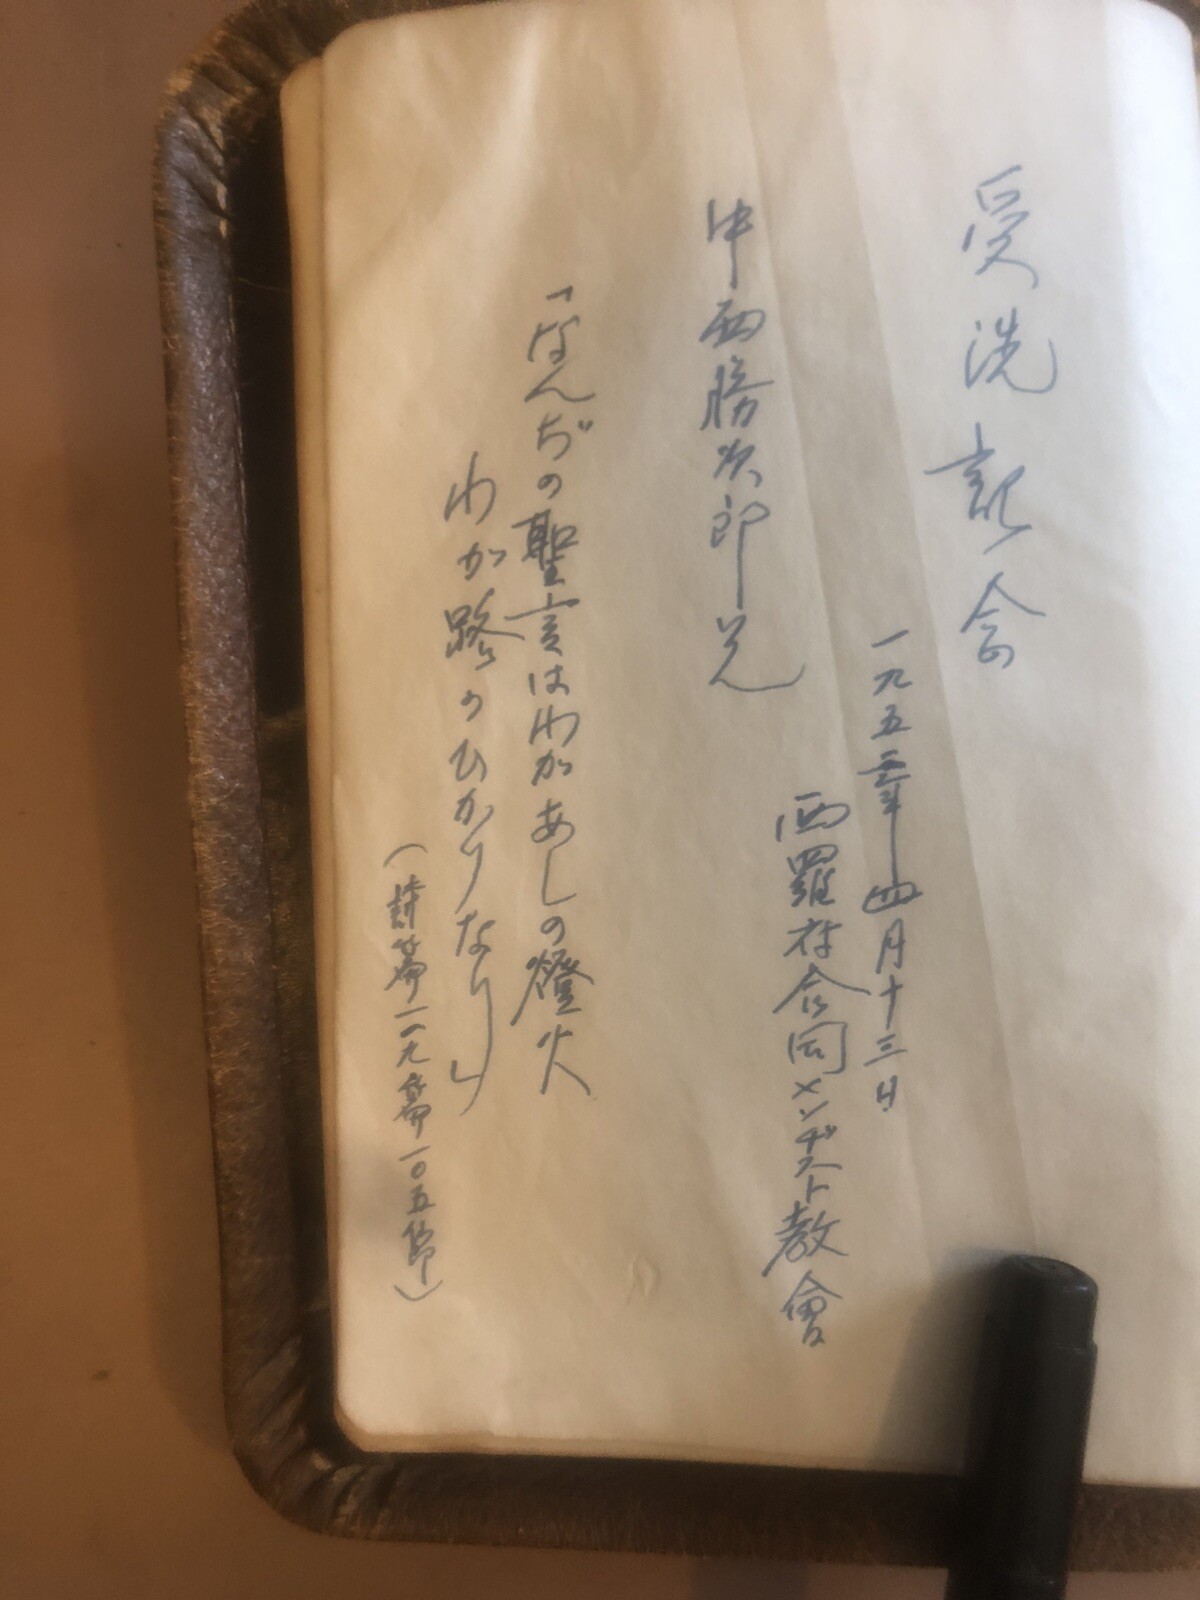 受洗記念
一九五二年四月十三日
西羅府合同メソヂスト教會
中西勝次郎兄
「なんぢの聖言はわがあしの燈火
わが路のひかりなり」
(詩篇一一九篇一〇五節)